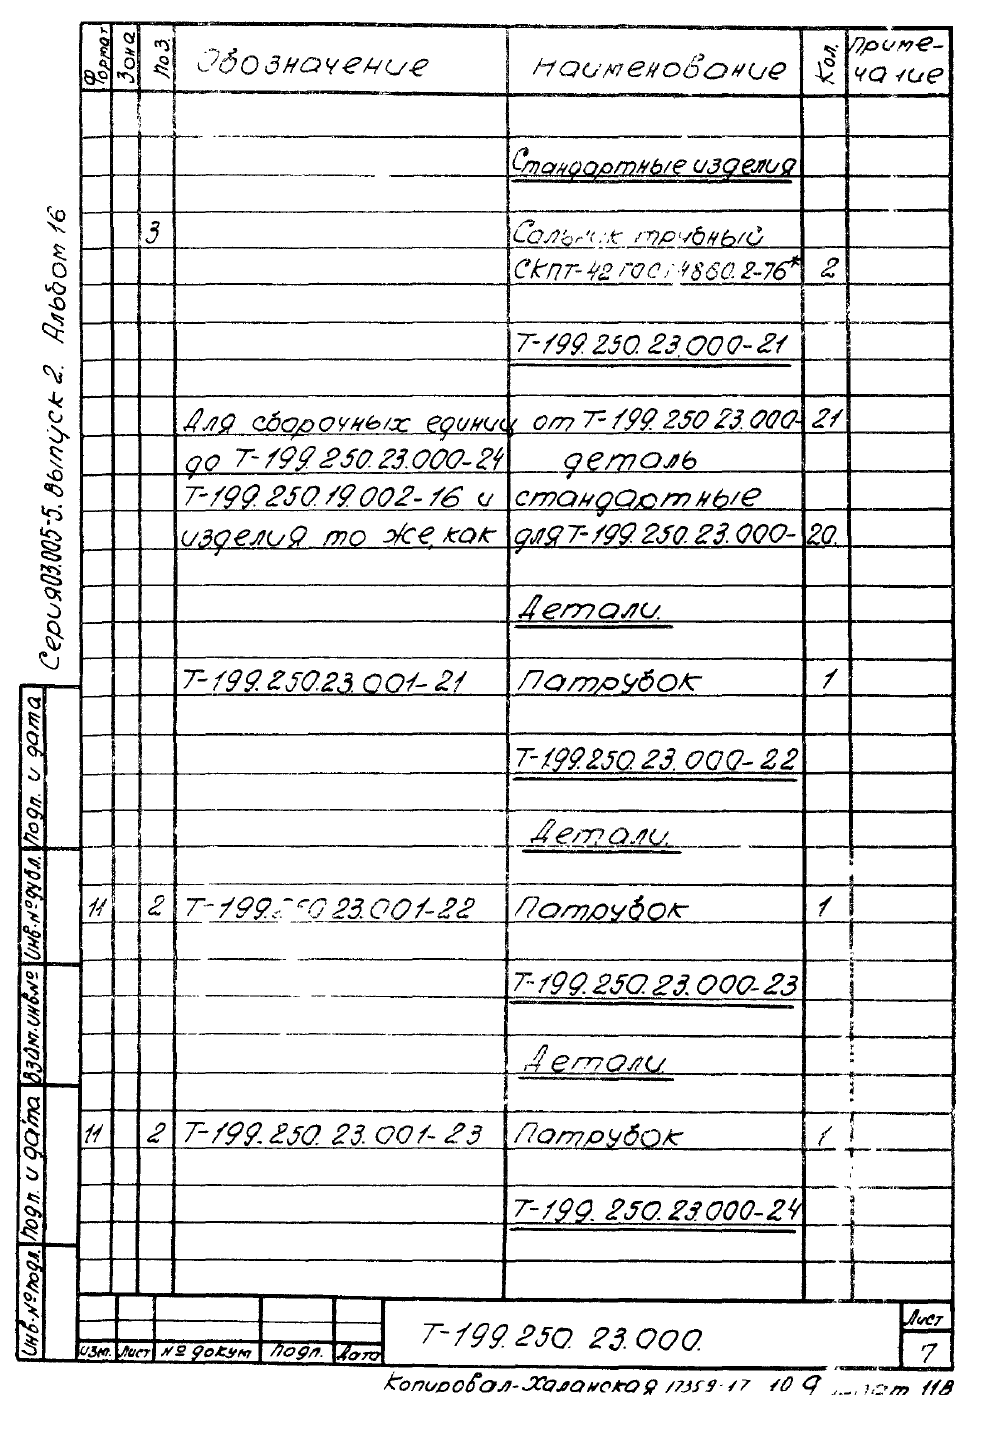 Формат Зона Поз. Обозначение Наименование Кол. Приме-
чание
Стандартные изделия
3 Сальник трубный
СКПТ-42 ГОСТ 4860.2-76* 2
Т-199.250.23.000-21
Для сборочных единиц от Т-199.250 23.000-21
до Т-199.250.23.000-24 деталь
Т-199.250.19.002-16 и стандартные
изделия то же, как для Т-199.250.23.000-20.
Детали.
Т-199.250.23.001-21 Патрубок 1
Т-199.250.23.000-22
Детали.
11 2 Т-199. 23.001-22 Патрубок 1
Т-199.250.23.000-23
Детали
11 2 Т-199.250.23.001-23 Патрубок 1
Т-199.250.23.000-24
Серия 03.005-5. Выпуск 2. Альбом 16
Подп. и дата
Инв.№ дубл.
Взам.инв.№
Подп. и дата
Инв.№ подл.
Изм. Лист № докум Подп. Дата
Т-199.250.23.000.
Лист
7
Копировал-Халанская 17359-17 10 11В